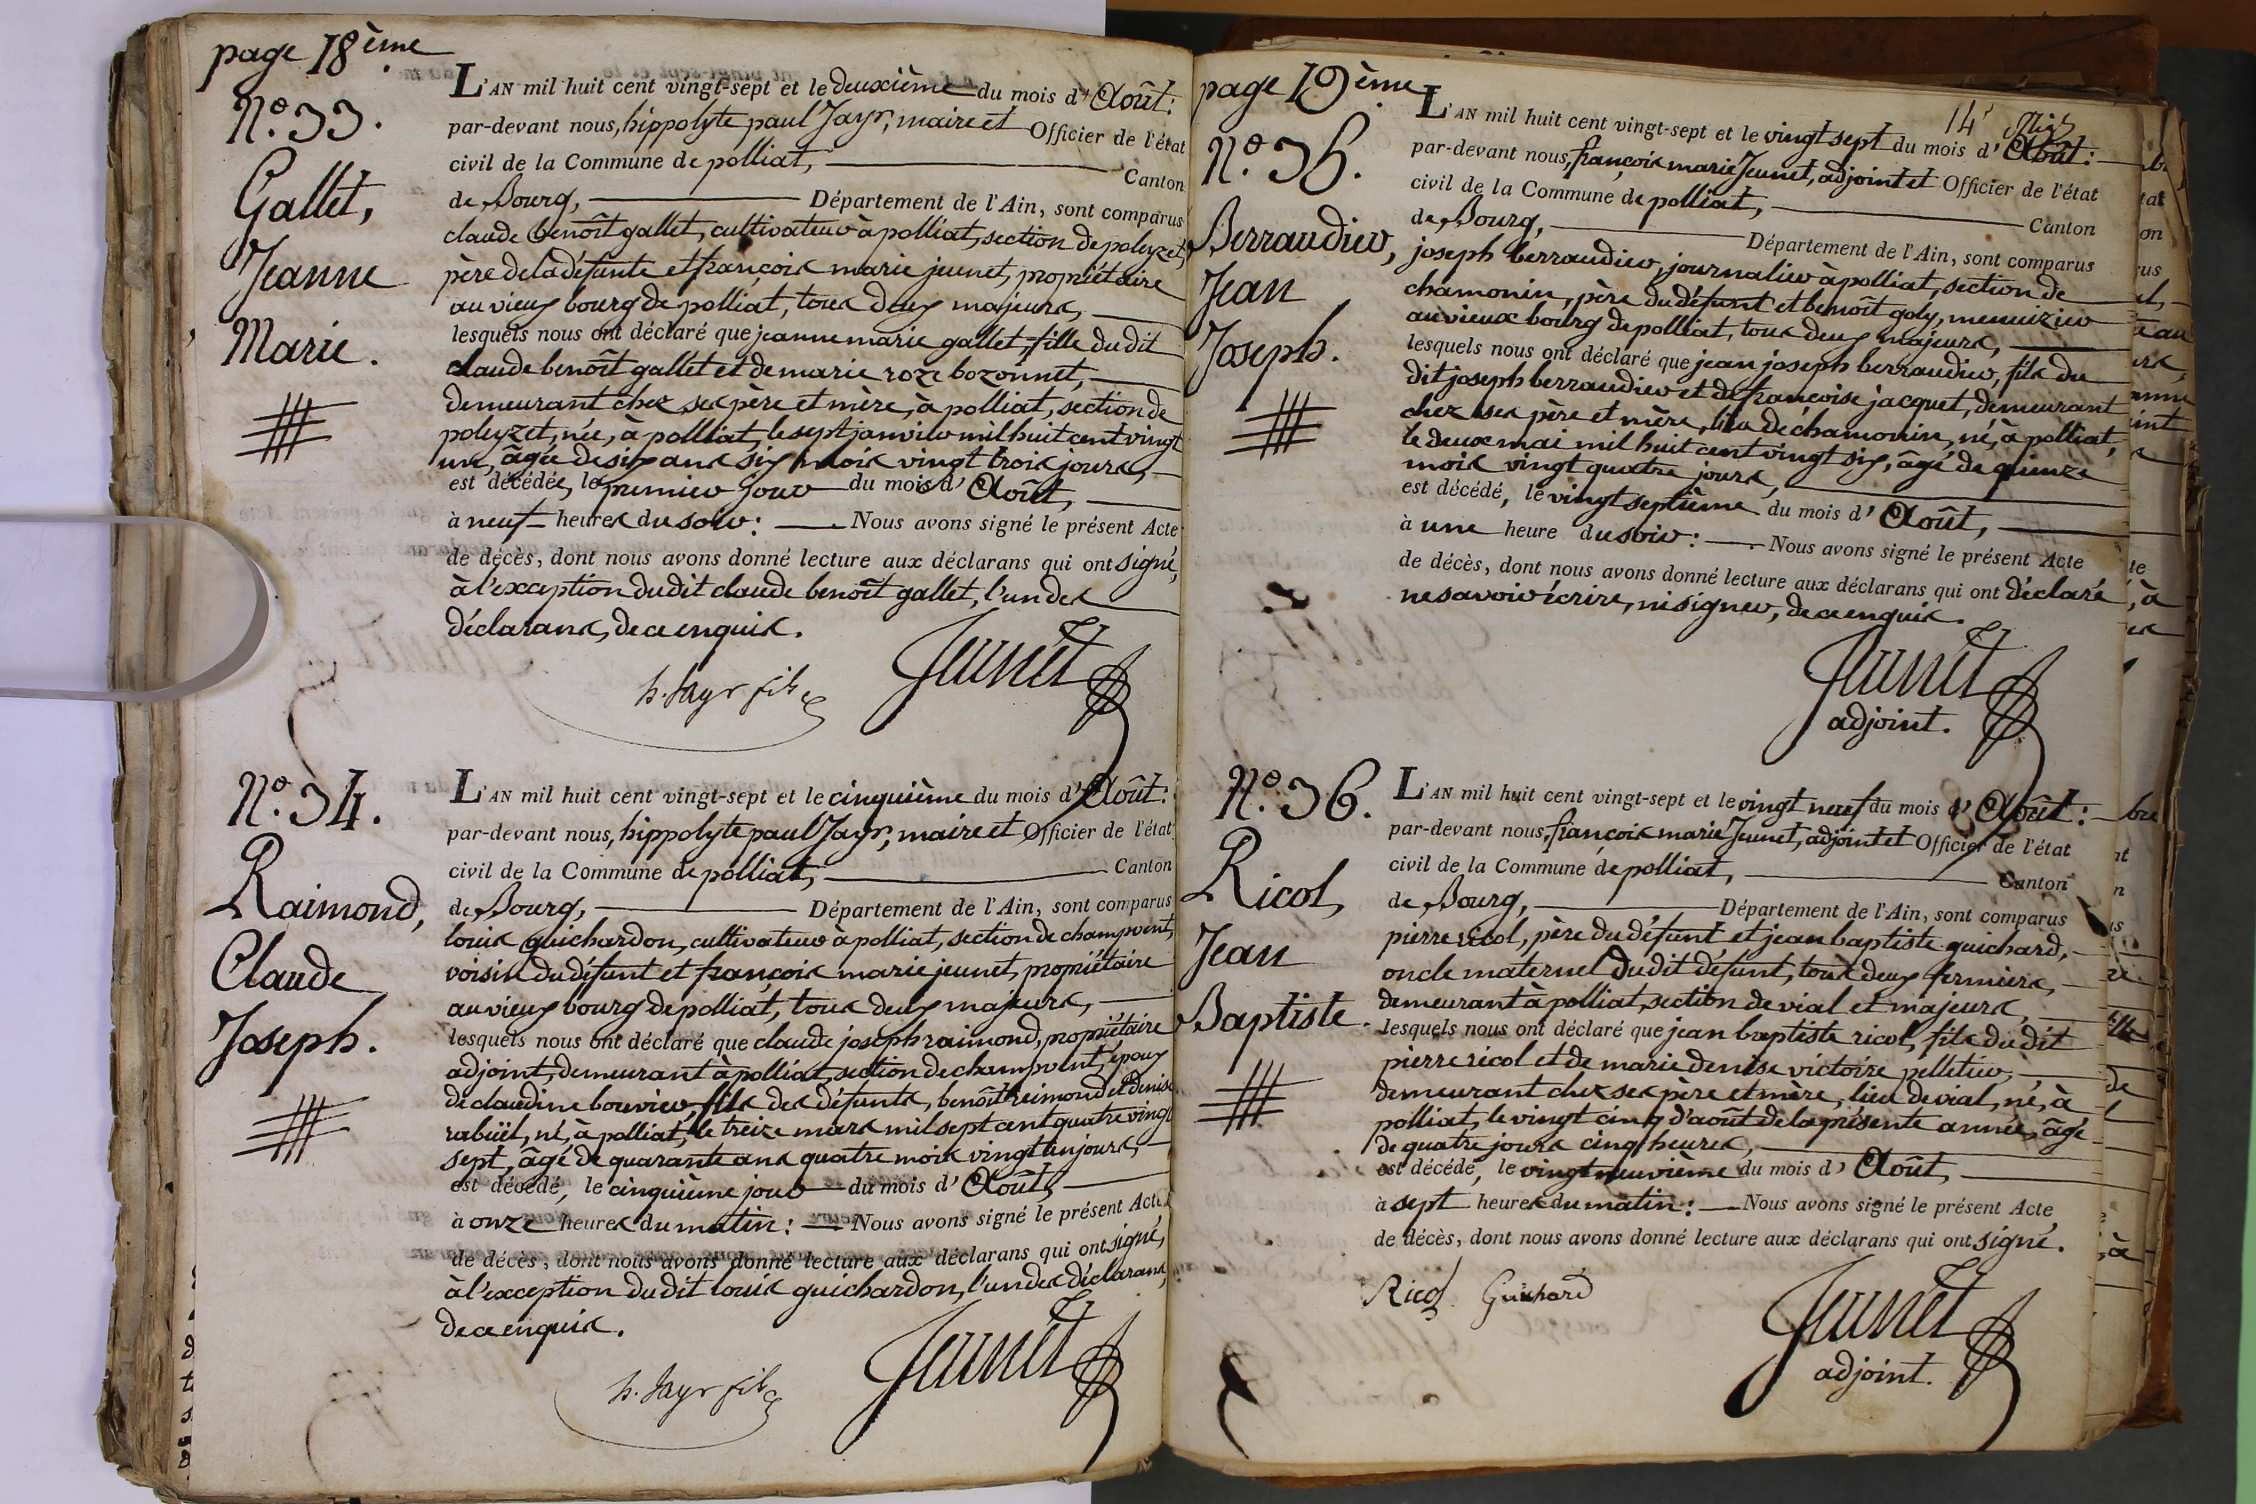 page 18ème
N.o 33.
Gallet,
Jeanne
Marie.
L'AN mil huit cent vingt-sept et le deuxième du mois d'Août:
par-devant nous, hippolyte paul Jayr, maire et Officier de l'état
civil de la Commune de polliat, Canton
de Bourg, Département de l'Ain, sont comparus
claude benoît gallet, cultivateur à polliat, section de poleyzet,
père de la défunte et françois marie jeunet, propriétaire
au vieux bourg de polliat, tous deux majeurs,
lesquels nous ont déclaré que jeanne marie gallet, fille du dit
claude benoît gallet et de marie roze bozonnet,
demeurant chez ses père et mère, à polliat, section de
poleyzet, née, à polliat, le sept janvier mil huit cent vingt
un, âgée de six ans six mois vingt trois jours,
est décédée, le premier jour du mois d'Août,
à neuf heures du soir: Nous avons signé le présent Acte
de décès, dont nous avons donné lecture aux déclarans qui ont signé,
à l'exception du dit claude benoît gallet, l'un des
déclarans, de ce enquis.
h. Jayr fils Jeunet
N.o 34.
Raimond,
Claude
Joseph.
L'AN mil huit cent vingt-sept et le cinquième du mois d'Août:
par-devant nous, hippolyte paul Jayr, maire et Officier de l'état
civil de la Commune de polliat, Canton
de Bourg, Département de l'Ain, sont comparus
louis guichardon, cultivateur à polliat, section de champvent,
voisin du défunt et françois marie jeunet, propriétaire
au vieux bourg de polliat, tous deux majeurs,
lesquels nous ont déclaré que claude joseph raimond, propriétaire
adjoint, demeurant à polliat, section de champvent, époux
de claudine bouvier, fils des défunts, benoît reimond et denise
rabüel, né, à polliat, le treize mars mil sept cent quatre vingt
sept, âgé de quarante ans quatre mois vingt un jours,
est décédé, le cinquième jour du mois d'Août,
à onze heures du matin: Nous avons signé le présent Acte
de décès, dont nous avons donné lecture aux déclarans qui ont signé,
à l'exception du dit louis guichardon, l'un des déclarans,
de ce enquis.
h. Jayr fils Jeunet
page 19ème
14e
N.o 35.
Berraudier,
Jean
Joseph.
L'AN mil huit cent vingt-sept et le vingt sept du mois d'Août:
par-devant nous, françois marie Jeunet, adjoint et Officier de l'état
civil de la Commune de polliat, Canton
de Bourg, Département de l'Ain, sont comparus
joseph berraudier, journalier à polliat, section de
chamonin, père du défunt et benoît goly, menuizier
au vieux bourg de polliat, tous deux majeurs,
lesquels nous ont déclaré que jean joseph berraudier, fils du
dit joseph berraudier et de françoise jacquet, demeurant
chez ses père et mère, lieu de chamonin, né, à polliat,
le deux mai mil huit cent vingt six, âgé de quinze
mois vingt quatre jours,
est décédé, le vingt septième du mois d'Août,
à une heure du soir: Nous avons signé le présent Acte
de décès, dont nous avons donné lecture aux déclarans qui ont déclaré
ne savoir écrire, ni signer, de ce enquis.
Jeunet
adjoint.
N.o 36.
Ricol,
Jean
Baptiste.
L'AN mil huit cent vingt-sept et le vingt neuf du mois d'Août:
par-devant nous, françois marie Jeunet, adjoint et Officier de l'état
civil de la Commune de polliat, Canton
de Bourg, Département de l'Ain, sont comparus
pierre ricol, père du défunt et jean baptiste guichard,
oncle maternel du dit défunt, tous deux fermiers,
demeurant à polliat, section de vial et majeurs,
lesquels nous ont déclaré que jean baptiste ricol, fils du dit
pierre ricol et de marie denise victoire pelletier,
demeurant chez ses père et mère, lieu de vial, né, à
polliat, le vingt cinq d'août de la présente année, âgé
de quatre jours cinq heures,
est décédé, le vingt neuvième du mois d'Août,
à sept heures du matin: Nous avons signé le présent Acte
de décès, dont nous avons donné lecture aux déclarans qui ont signé.
Ricol Guichard Jeunet
adjoint.